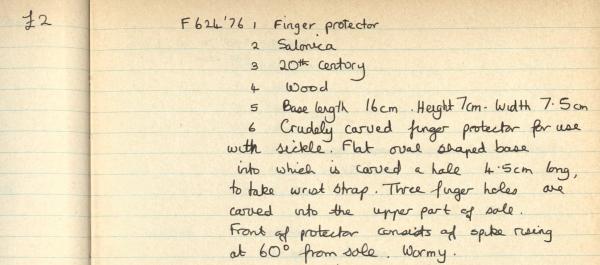 £2
F624'76 1 Finger protector
2 Salonica
3 20th century
4 Wood
5 Base length 16cm. Height 7cm. Width 7.5cm
6 Crudely carved finger protector for use
with sickle. Flat oval shaped base
into which is carved a hole 4.5cm long,
to take wrist strap. Three finger holes are
carved into the upper part of sole.
Front of protector consists of spike rising
at 60° from sole. Wormy.